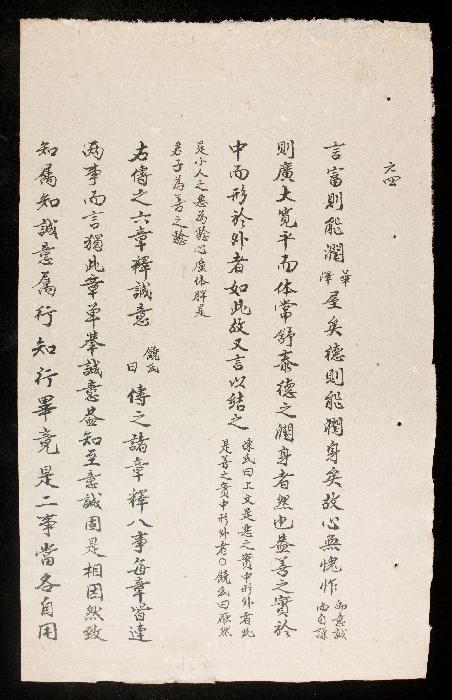 六四
言富則能潤華澤屋矣德則能潤身矣故心無愧怍即意誠而自謙
則廣大寬平而体常舒泰德之潤身者然也蓋善之實於
中而形於外者如此故又言以結之陳氏曰上文是惡之實中形外者此是善之實中形外者○饒氏曰厭然
是小人之惡為驗心廣体胖是君子為善之驗
右傳之六章釋誠意饒氏曰傳之諸章釋八事每章皆連
兩事而言獨此章單舉誠意蓋知至意誠固是相因然致
知屬知誠意属行知行畢竟是二事當各自用